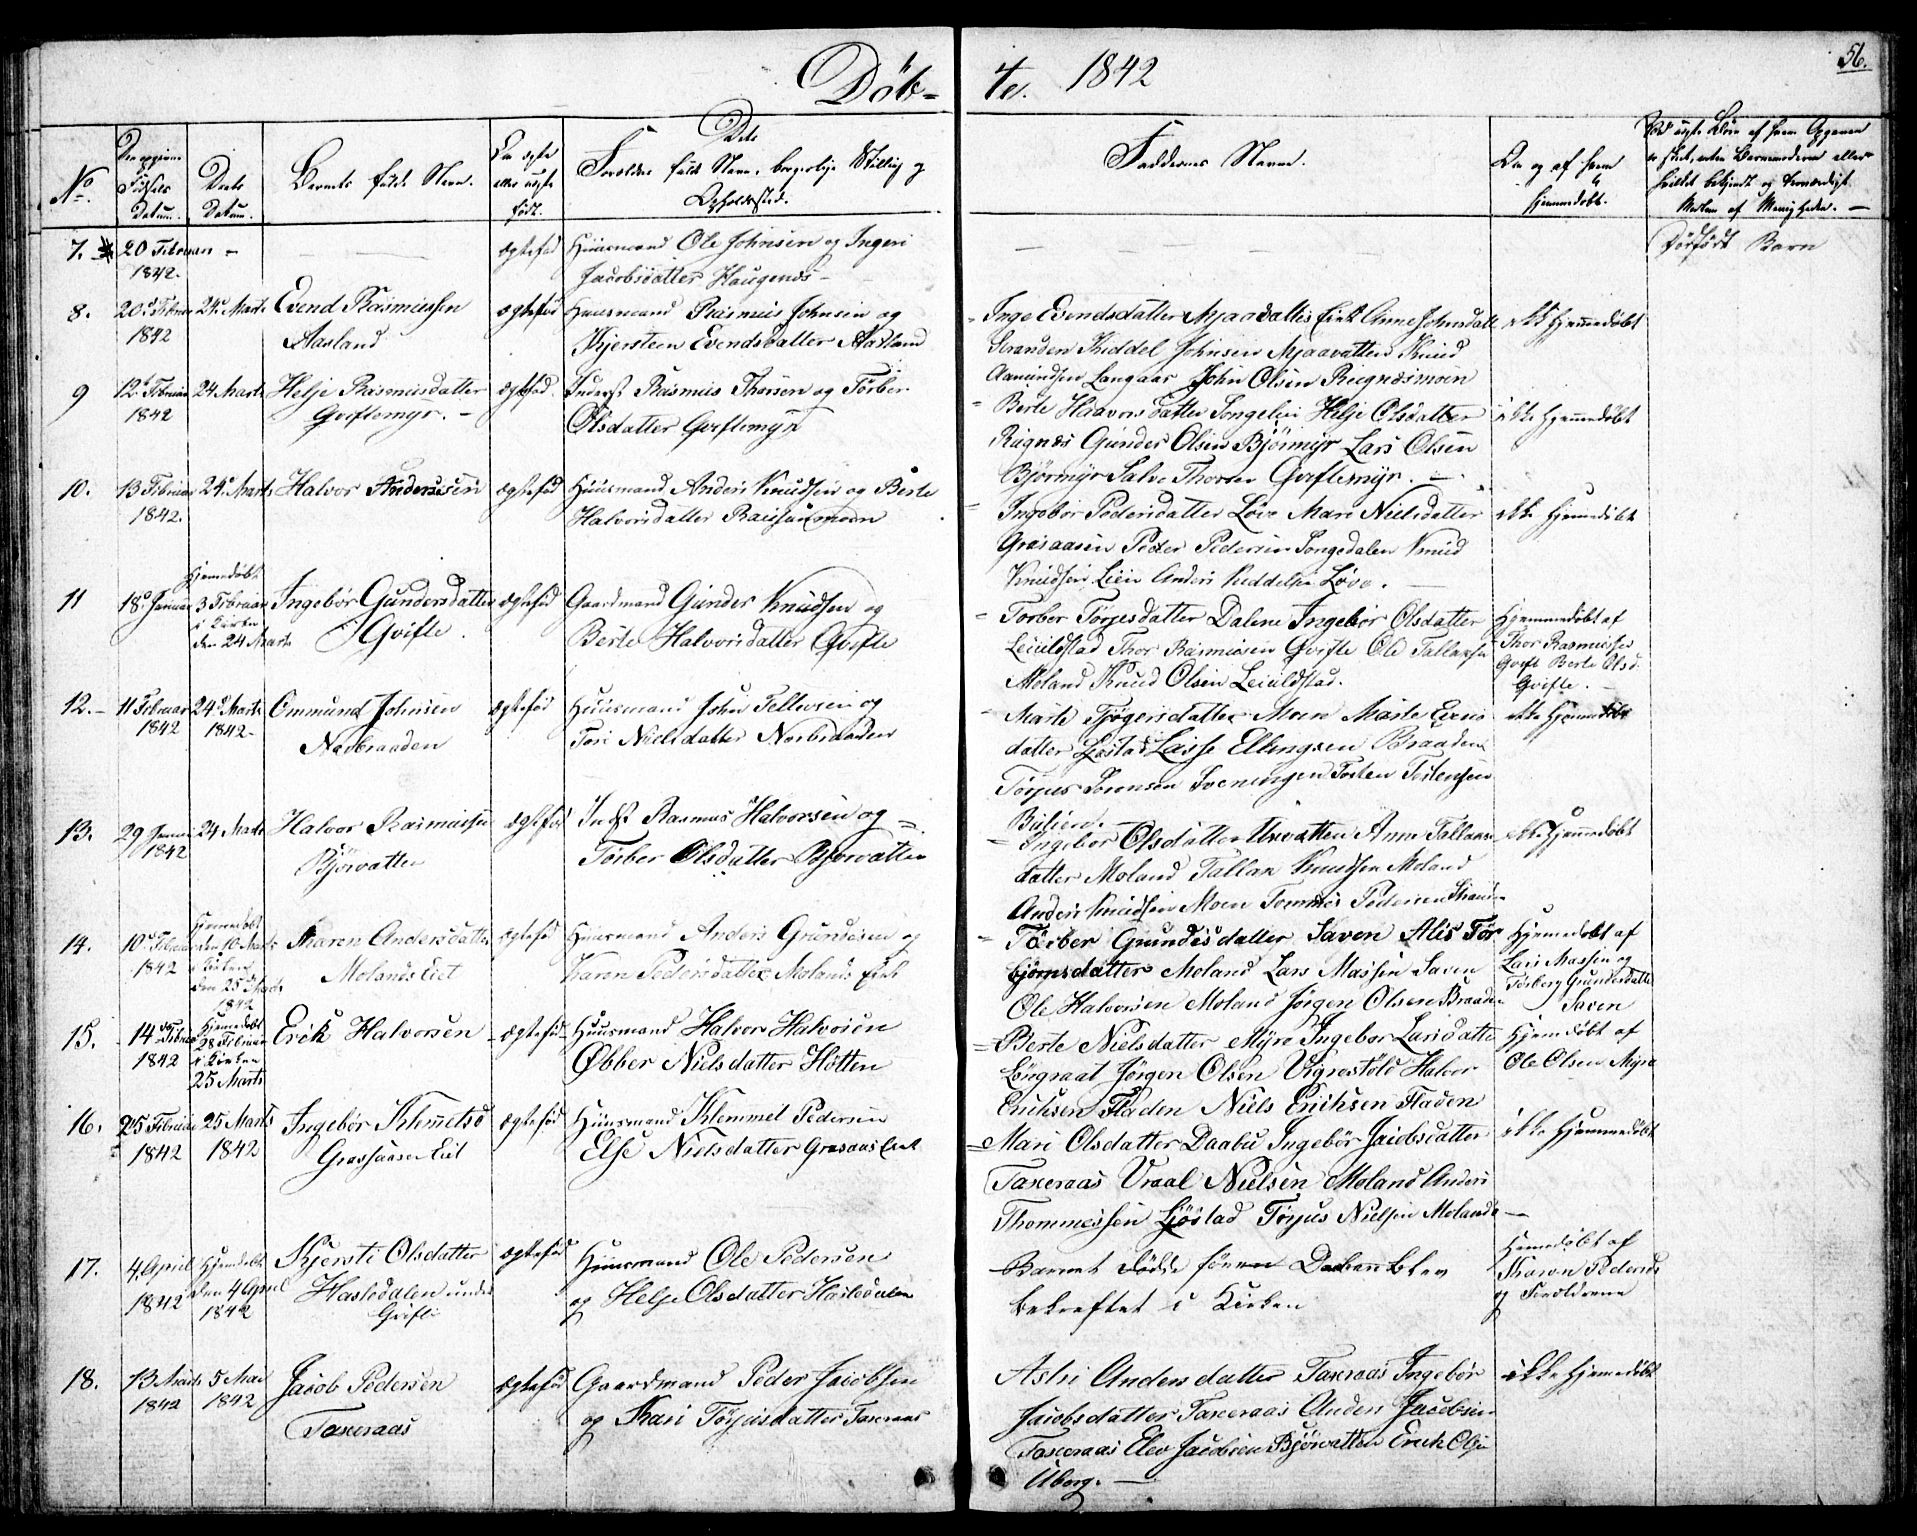 Døb-
te. 1842
56.
No.
Fødsels Datum.
Daabs Datum.
Barnets fulde Navn.
Om ægte eller uægte født.
Dets
Forældres fulde Navn, borgerlige Stilling og
Opholdssted.
Faddernes Navne.
Om og af hvem
hjemmedøbt.
7. 20 Februar 1842. – ægtefød Huusmand Ole Johnsen og Ingeri
Jacobsdatter Haugenæs – Dødfødt Barn
8. 20 Februar 1842 24 Marts Evend Rasmussen
Aasland
ægtefød Huusmand Rasmus Johnsen og
Kjersteen Evendsdatter Aasland
Inge Evendsdatter Mjaavatten Anne Johnsdatt
Stranden Kiddel Johnsen Mjaavatten Knud
Aamundsen Langaas John Olsen Rugnæsmoen
ikke Hjemmedøbt
9 12 Februar 1842 24 Marts Helje Rasmusdatter
Gviftemyr. –
ægtefød. Inderst Rasmus Thorsen og Torber
Olsdatter Gviftemyr
Berte Haavorsdatter Songelien Helje Olsdatter
Rugnæs Gunder Olsen Bjørmyr Lars Olsen
Bjørmyr Salve Thorsen Gviftemyr. –
ikke Hjemmedøbt
10. 13 Februar 1842. 24 Marts Halvor Andersen ægtefød Huusmand Anders Knudsen og Berte
Halvorsdatter
Ingebor Pedersdatter Løvo Mari Nielsdatter
Grasaasen Peder Pedersen Songedalen Knud
Knudsen Lien Anders Kiddelsen Løvo.
ikke Hjemmedøbt
11 18 Januar Hjemmedøbt 3 Februar i Kirken den 24 Marts
Ingebør Gundersdatter
Gvifte.
ægtefød Gaardmand Gunder Knudsen og
Berte Halvorsdatter Gvifte
Torber Torjesdatter Dalene Ingebor Olsdatter
Leiuldstad Thor Rasmusen Gvifte Ole Tallaksen
Moland Knud Olsen Leiuldstad.
Hjemmedøbt af
Thor Rasmussen
Gvift Berte Olsd.
Gvifte. –
12. – 11 Februar 1842 24 Marts 1842 – Ommund Johnsen
Næsbraaden
ægtefød Huusmand John Tellevsen og
Tori Nielsdatter Næsbraaden
Marte Tjøgersdatter Moen Marte
datter Lasse Ellingsen Braaden
Torjus Sorensen Sveningen Tosten Tostensen

ikke Hjemmedøbt
13. 29 Januar 1842 24 Marts Halvor Rasmussen
Bjørvatten
ægtefød Indst Rasmus Halvorsen og
Torber Olsdatter Bjorvatten
Ingebor Olsdatter Urvatten Anne Tallaks
datter Moland Tallak Knudsen Moland
Anders Knudsen Moen Tommes Pedersen Strand
ikke Hjemmedøbt
14. 10 Februar 1842 Hjemmedøbt den 10 Marts i Kirken den 25 Marts 1842
Karen Andersdatter
Molands Eiet
ægtefød Huusmand Anders Grundesen og
Karen Pedersdatter Molands Eiet
Torber Grundesdatter Saven Alis Tor
bjørnsdatter Moland Lars Massen Saven
Ole Halvorsen Moland Jørgen Olsen Braaden
Hjemmedøbt af
Lars Massen og
Torberg Grundesdatter
Saven
15. 14 Februar 1842 Hjemmedøbt 28 Februar i Kirken 25 Marts
Erik Halvorsen
ægtefød Huusmand Halvor Halvorsen
Øbber Nielsdatter Hotten
Berte Nielsdatter Myre Ingebor Larsdatter
Longraat Jørgen Olsen Vigrestøld Halvor
Erichsen Fladen Niels Erichsen Fladen
Hjemdøbt af
Ole Olsen Myre
16. 25 Februar 1842 25 Marts 1842 Ingebør Klemmetsd
Grassaasen Eiet
ægtefød Huusmand Klemmet Pedersen
Else Nielsdatter Grasaas Eiet
Mari Olsdatter Daabu Ingebør Jacobsdatter
Taxeraas Vraal Nielsen Moland Anders
Thommessen Ljøstad Torjus Nielsen Moland
ikke Hjemmedøbt
17. 4 April 1842 Hjemdøbt den 4 April 1842
Kjersti Olsdatter
Hasledalen under
Gvifte
ægtefød Huusmand Ole Pedersen
og Helje Olsdatter Hasledalen
Barnet døde føren Daaben blev
bekreftet i Kirken
Hjemedøbt af
Karen Pedersd
og Forældrene
18. 13 Marts 1842 5 Mai 1842 Jacob Pedersen
Taxeraas
ægtefød Gaardmand Peder Jacobsen
og Kari Torjusdatter Taxeraas
Aslri Andersdatter Taxeraas Ingebør
Jacobsdatter Taxeraas Anders Jacobsen
Taxeraas Elev Jacobsen Bjørvatten Erick Olsen
Uberg. –
ikke Hjemmedøbt